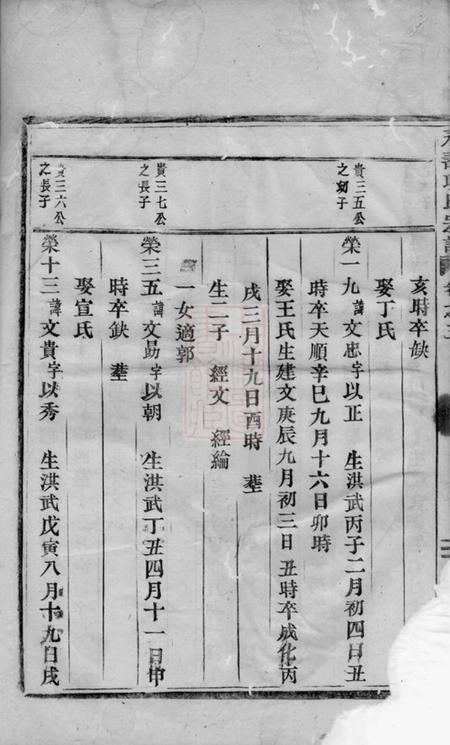 亥時卒缺
娶丁氏
貴三五公
之幼子
榮一九諱文忠字以正 生洪武丙子二月初四日丑
時卒天順辛巳九月十六日卯時
娶王氏生建文庚辰九月初三日丑時卒成化丙
戌三月十九日酉時 塟
生二子 經文 經綸
一女適郭
貴三七公
之長子
榮三五諱文勗字以朝 生洪武丁丑四月十一日申
時卒缺 塟
娶宣氏
貴三六公
之長子
榮十三諱文貴字以秀 生洪武戊寅八月十九日戌